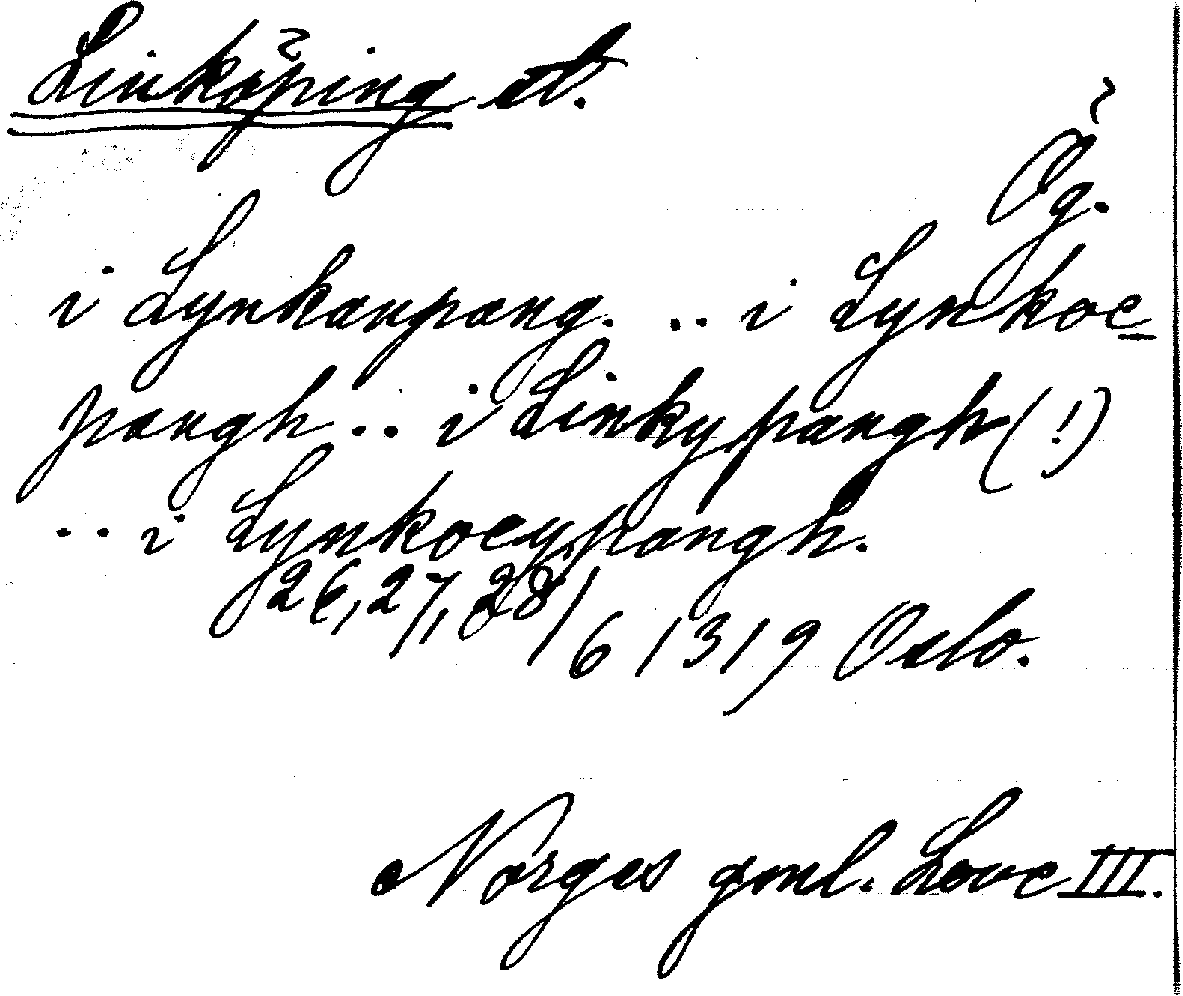 Linköping st.
Ög.
i Lynkaupang. .. i Lynkoe-
pangh .. i Linkypangh (!)
.. i Lynkoeypangh.
26, 27, 28/6 1319 Oslo.
Norges gml. Love III.